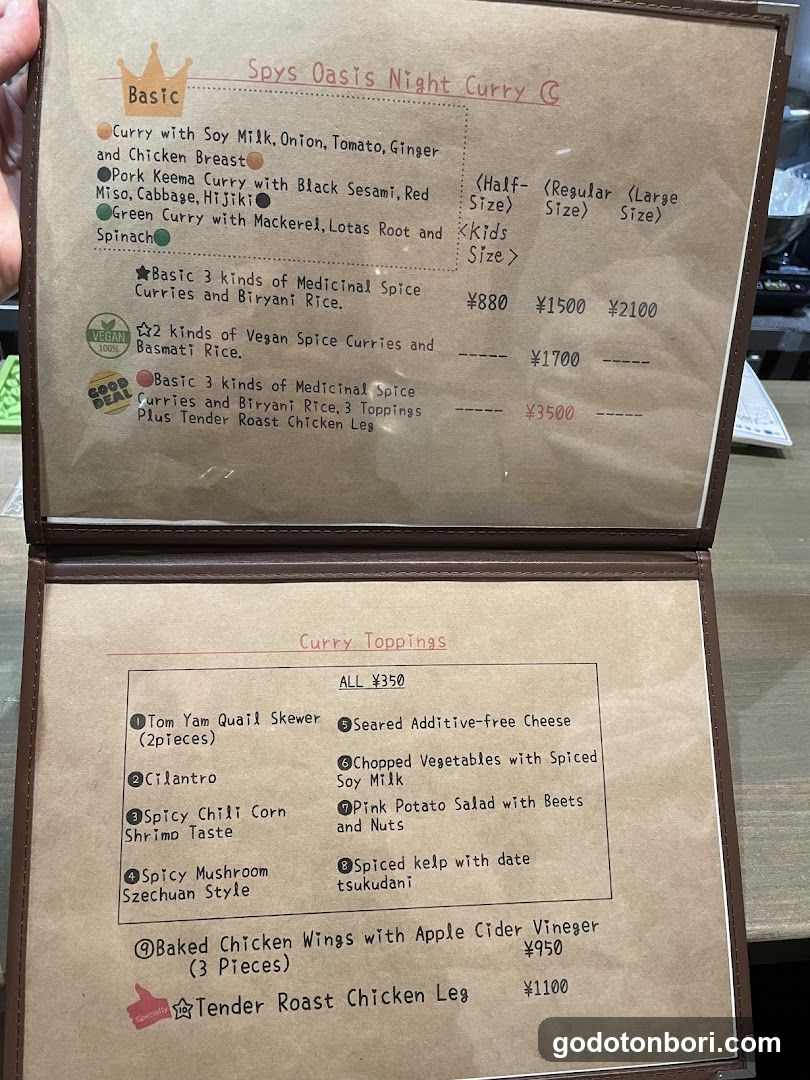 Spys Oasis Night Curry
Basic
Curry with Soy Milk, Onion, Tomato, Ginger
and Chicken Breast
Pork Keema Curry with Black Sesami, Red
Miso, Cabbage, Hijiki
Green Curry with Mackerel, Lotas Root and
Spinach
〈Half-Size〉 〈Regular Size〉 〈Large Size〉
<Kids Size>
★Basic 3 kinds of Medicinal Spice
Curries and Biryani Rice.
¥880 ¥1500 ¥2100
VEGAN 100%
☆2 kinds of Vegan Spice Curries and
Basmati Rice.
----- ¥1700 -----
GOOD DEAL
Basic 3 kinds of Medicinal Spice
Curries and Biryani Rice, 3 Toppings
Plus Tender Roast Chicken Leg
----- ¥3500 -----
Curry Toppings
ALL ¥350
❶Tom Yam Quail Skewer
(2pieces)
❷Cilantro
❸Spicy Chili Corn
Shrimp Taste
❹Spicy Mushroom
Szechuan Style
❺Seared Additive-free Cheese
❻Chopped Vegetables with Spiced
Soy Milk
❼Pink Potato Salad with Beets
and Nuts
❽Spiced kelp with date
tsukudani
⑨Baked Chicken Wings with Apple Cider Vineger
(3 Pieces)
¥950
Specialty
10 Tender Roast Chicken Leg ¥1100
godotonbori.com